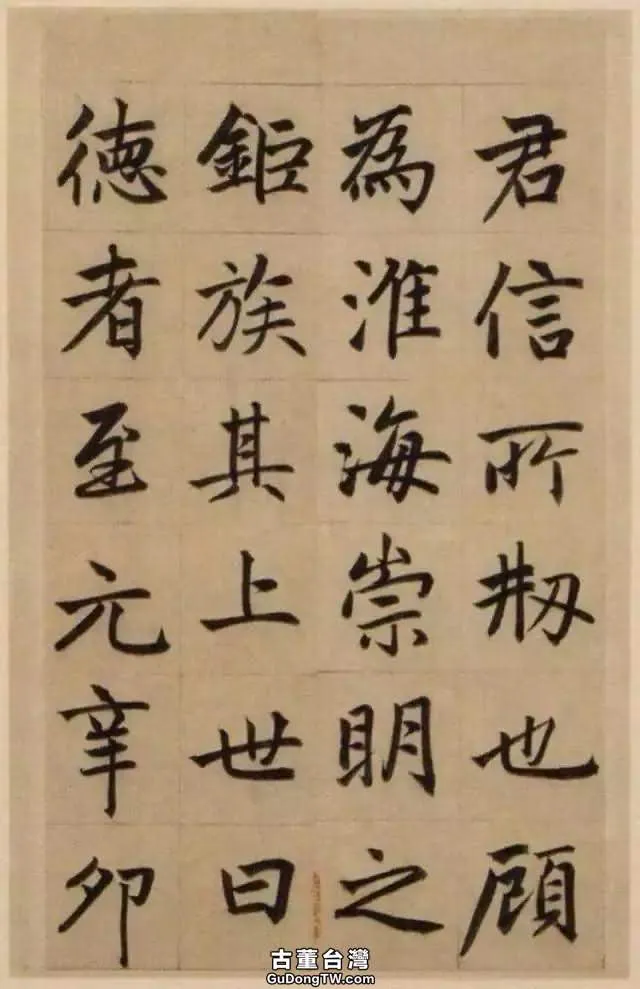 君信所刱也顧
為淮海崇明之
鉅族其上世曰
德者至元辛卯
古董台灣
GuDongTW.com